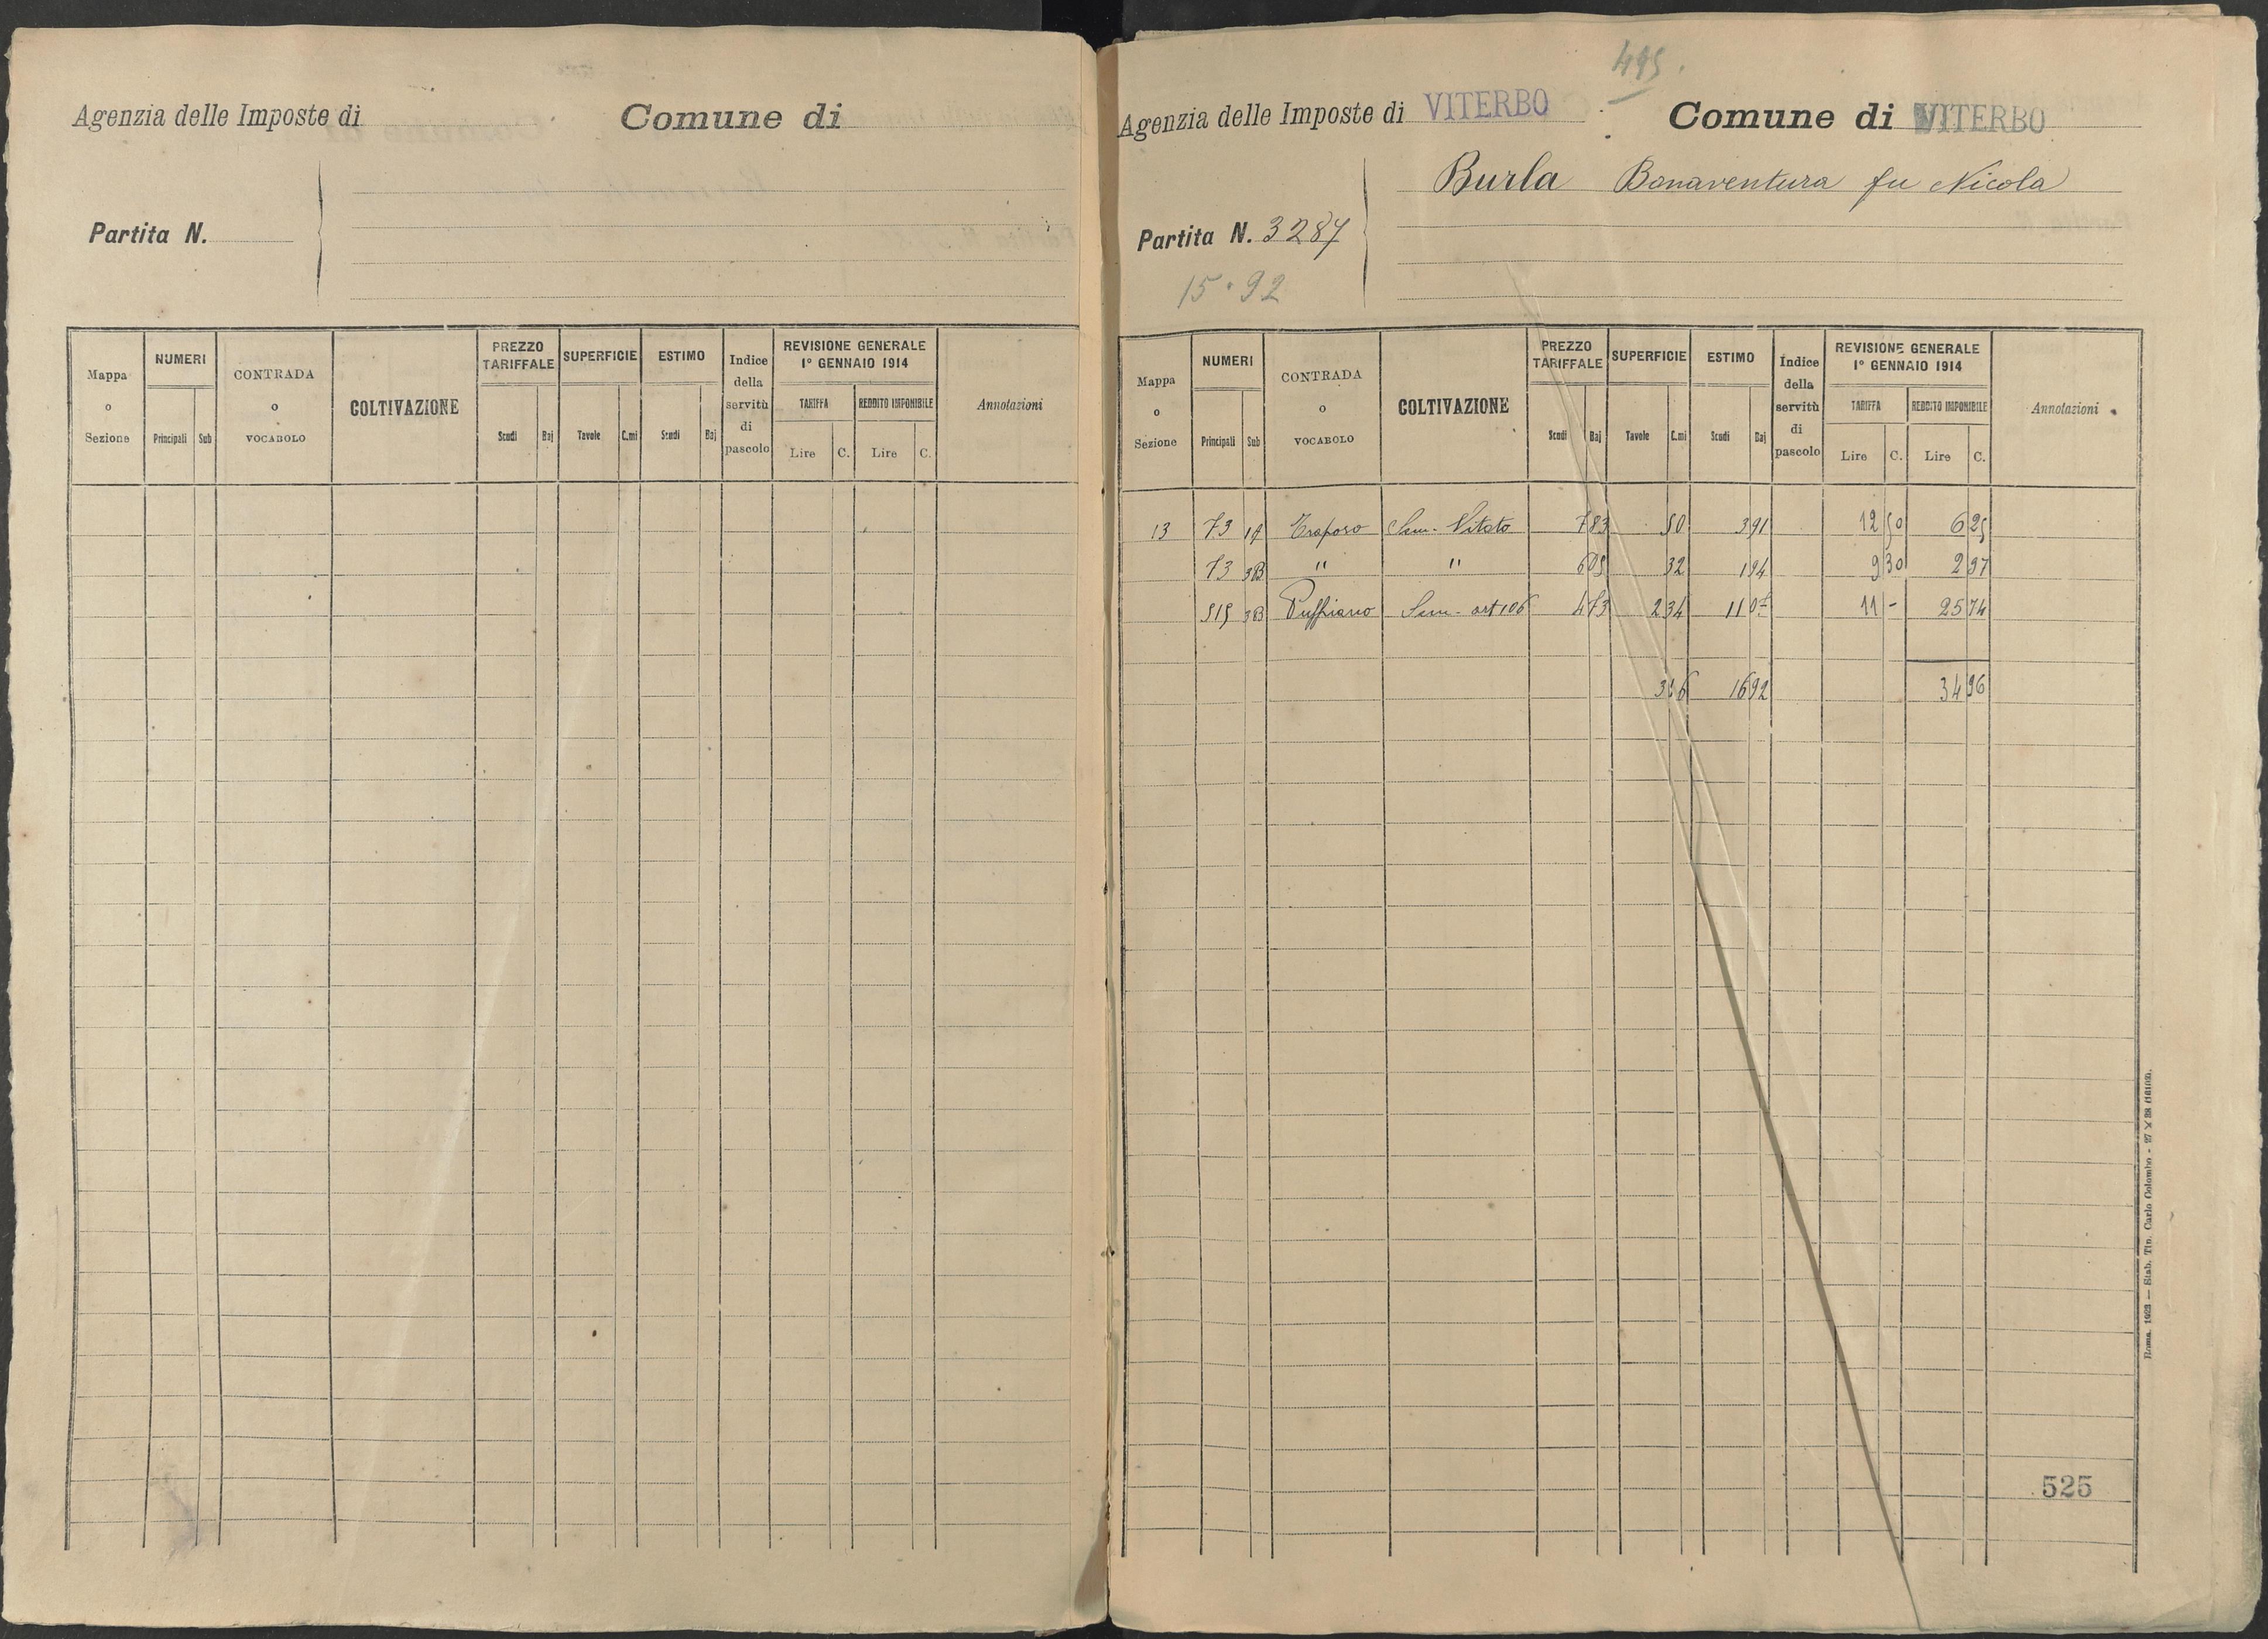 Agenzia delle Imposte di
Comune di
Partita N.
Mappa o Sezione
NUMERI
Principali Sub
CONTRADA o VOCABOLO
COLTIVAZIONE
PREZZO TARIFFALE
Scudi Baj
SUPERFICIE
Tavole C.mi
ESTIMO
Scudi Baj
Indice della servitù di pascolo
REVISIONE GENERALE
1° GENNAIO 1914
TARIFFA REDDITO IMPONIBILE
Lire C. Lire C.
Annotazioni
495.
Agenzia delle Imposte di VITERBO
Comune di VITERBO
Burla Bonaventura fu Nicola
Partita N. 3287
15.92
Mappa o Sezione
NUMERI
Principali Sub
CONTRADA o VOCABOLO
COLTIVAZIONE
PREZZO TARIFFALE
Scudi Baj
SUPERFICIE
Tavole C.mi
ESTIMO
Scudi Baj
Indice della servitù di pascolo
REVISIONE GENERALE
1° GENNAIO 1914
TARIFFA REDDITO IMPONIBILE
Lire C. Lire C.
Annotazioni
13 73 1A Sem. Vitato 7 83 50 3 91 12 50 6 25
73 3B " " 6 09 32 1 94 9 30 2 97
515 3B Sem. art 106 4 73 2 34 11 07 11 - 25 74
3 16 16 92 34 96
525
Roma, 1923 — Stab. Tip. Carlo Colombo - 27 × 38 (16103).